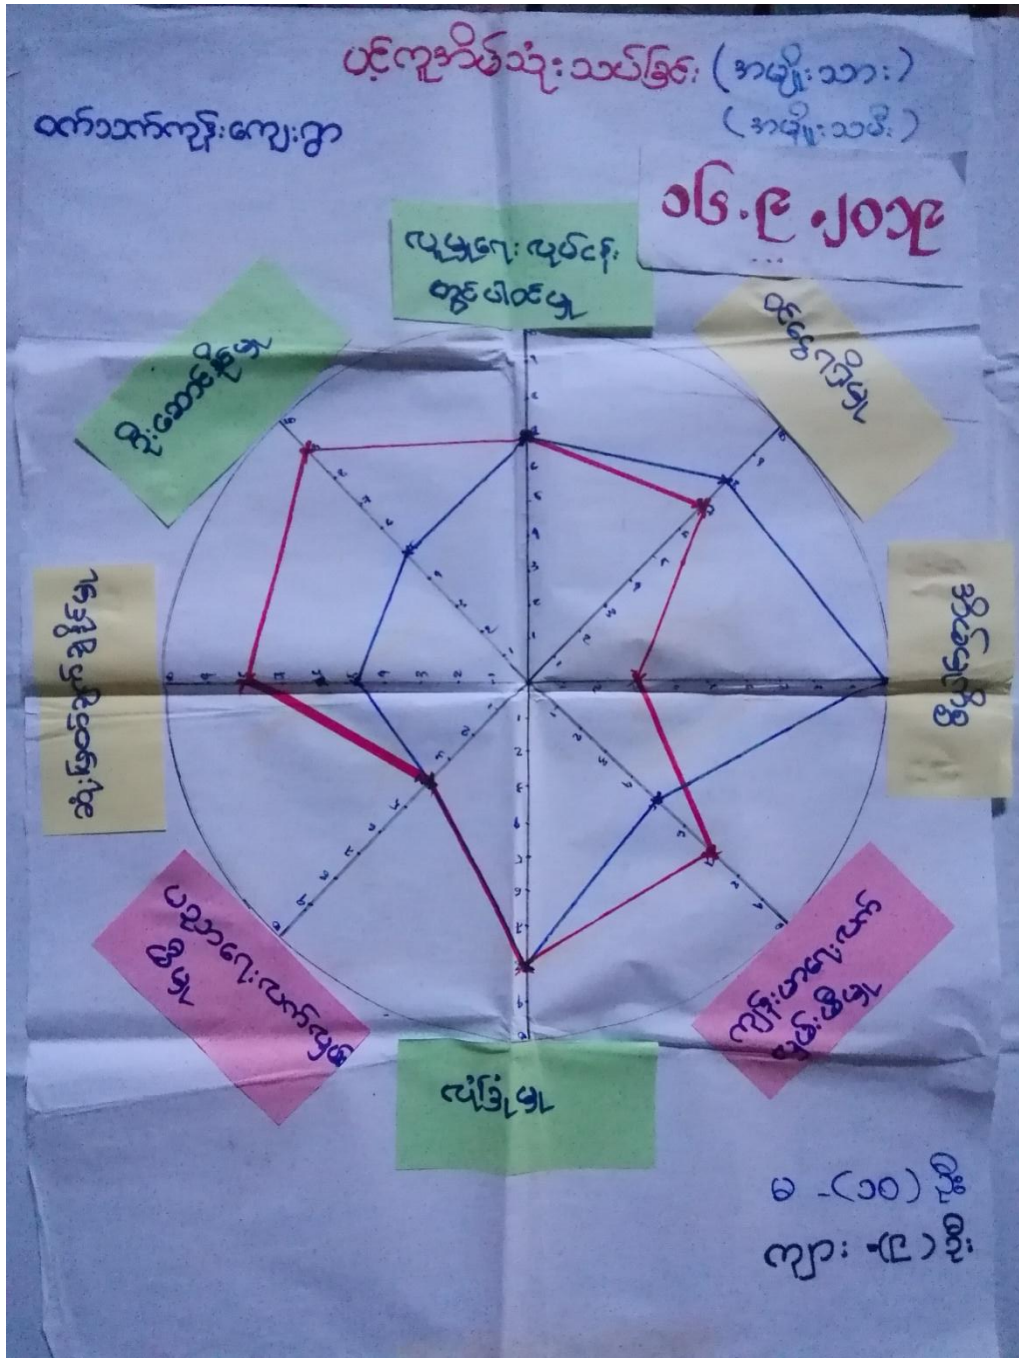 ပင့်ကူအိမ်သုံးသပ်ခြင်း (အမျိုးသား)
(အမျိုးသမီး)
ဝက်သက်ကုန်းကျေးရွာ
၁၆.၉.၂၀၁၉
လူမှုရေးလုပ်ငန်း
တွင်ပါဝင်မှု
ဝင်ငွေရရှိမှု
အိမ်မှုကိစ္စ
ကျန်းမာရေးလက်
လှမ်းမီမှု
လုံခြုံမှု
ပညာရေးလက်လှမ်း
မီမှု
ဆုံးဖြတ်ပိုင်ခွင့်ရှိမှု
ဦးဆောင်နိုင်မှု
မ - (၁၀) ဦး
ကျား - (၉) ဦး